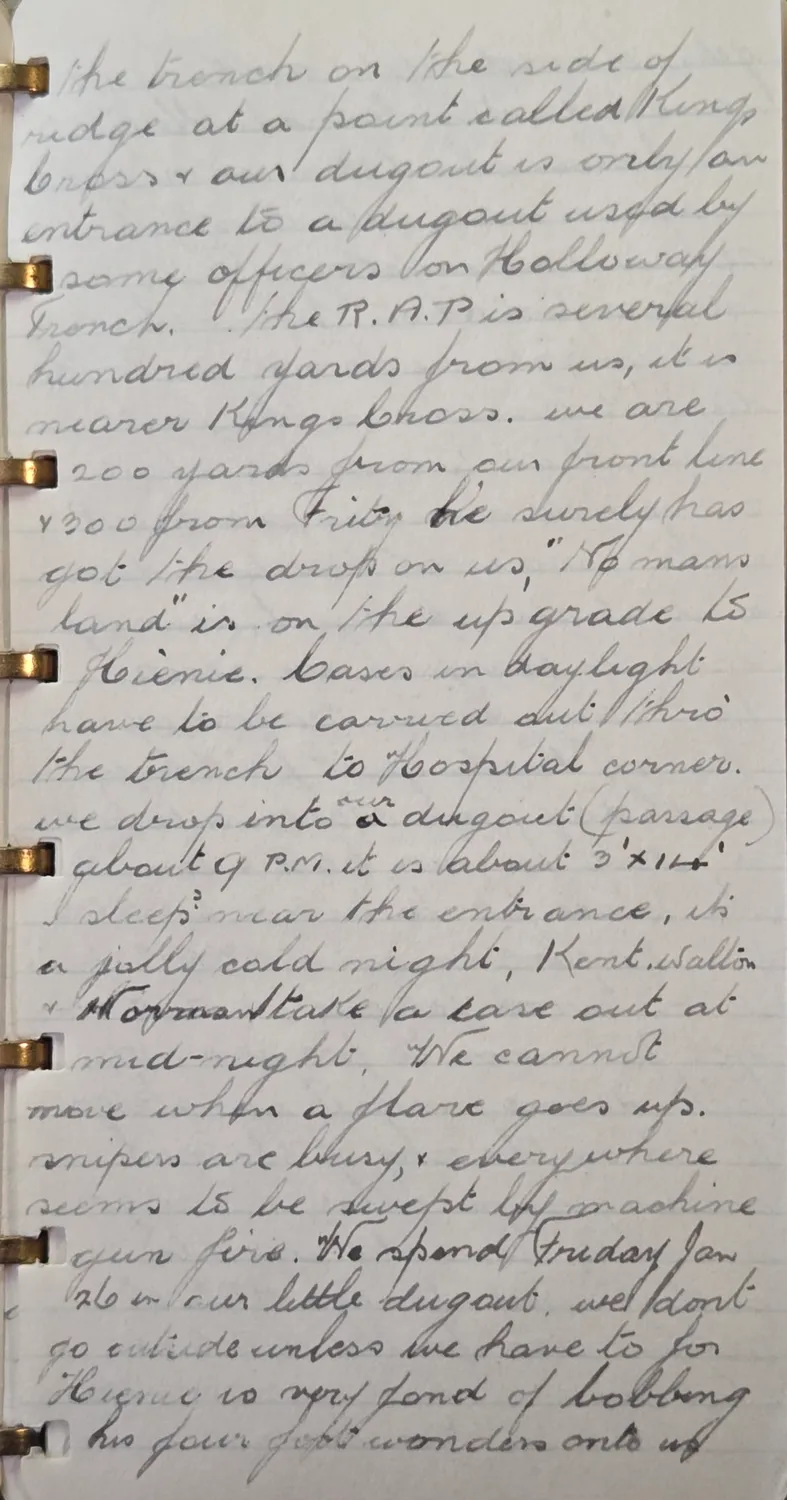 the trench on the side of
ridge at a point called Kings
Cross & our dugout is only an
entrance to a dugout used by
some officers on Holloway
Trench. the R.A.P is several
hundred yards from us, it is
nearer Kings Cross. we are
200 yards from our front line
& 300 from Fritz he surely has
got the drop on us, "No mans
land" is on the up grade to
Hienie. Cases in daylight
have to be carried out thro'
the trench to Hospital corner.
we drop into our dugout (passage)
about 9 P.M. it is about 3'x14'
I sleep? near the entrance, its
a jolly cold night, Kent. Walton
& Norman take a case out at
mid-night. We cannot
move when a flare goes up.
snipers are busy, & everywhere
seems to be swept by machine
gun fire. We spend Friday Jan
26 in our little dugout. we dont
go outside unless we have to for
Hienie is very fond of bobbing
his four foot wonders onto us